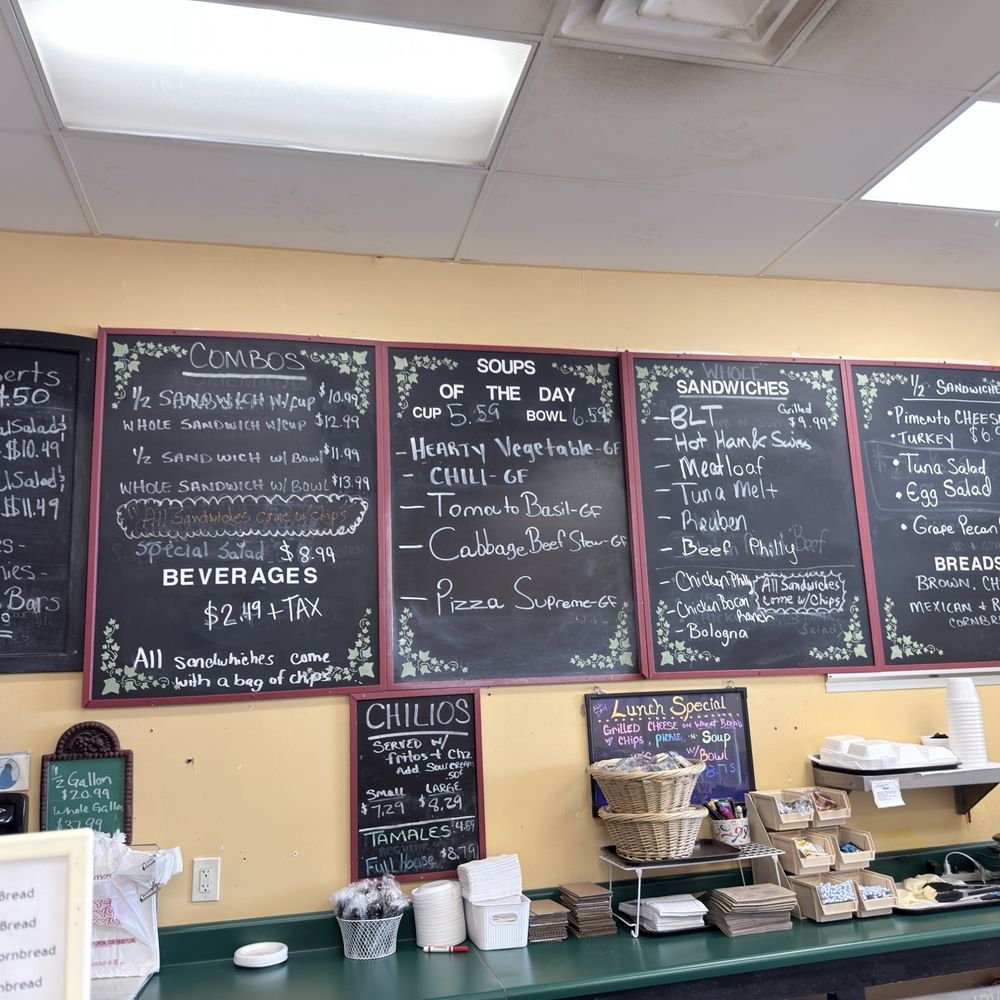 erts
4.50
Salads
$10.49
Salad
$11.49
es-
ies-
Bars
COMBOS
1/2 SANDWICH W/CUP $10.99
WHOLE SANDWICH W/CUP $12.99
1/2 SANDWICH W/ BOWL $11.99
WHOLE SANDWICH W/ BOWL $13.99
All Sandwiches come w/Chips
Special Salad $8.99
BEVERAGES
$2.49 + TAX
All sandwhiches come
with a bag of chips
SOUPS
OF THE DAY
CUP 5.59 BOWL 6.59
- HEARTY Vegetable-GF
- CHILI-GF
- Tomato Basil-GF
- Cabbage Beef Stew-GF
- Pizza Supreme-GF
WHOLE
SANDWICHES
Grilled
$9.99
- BLT
- Hot Ham & Swiss
- Meatloaf
- Tuna Melt
- Reuben
- Beef Philly
- Chicken Philly
- Chicken Bacon Ranch
- Bologna
All Sandwiches
Come w/Chips
1/2 SANDWICHE
• Pimento CHEESE
• TURKEY $6.
• Tuna Salad
• Egg Salad
• Grape Pecan
BREADS
BROWN, CH
MEXICAN + R
CORNBR
1/2 Gallon
$20.99
Whole Gallon
$37.99
CHILIOS
SERVED W/
fritos + Chz
Add Sour CREAM
.50¢
Small LARGE
$7.29 $8.29
TAMALES 4.59
Full House $8.79
Lunch Special
GRILLED CHEESE on Wheat BREAD
w/ CHIPS, PICKLE, N Soup
w/ Bowl
Bread
Bread
ornbread
nbread